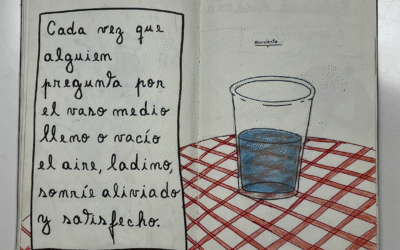 Cada vez que
alguien
pregunta por
el vaso medio
lleno o vacío
el aire, ladino,
sonríe aliviado
y satisfecho.